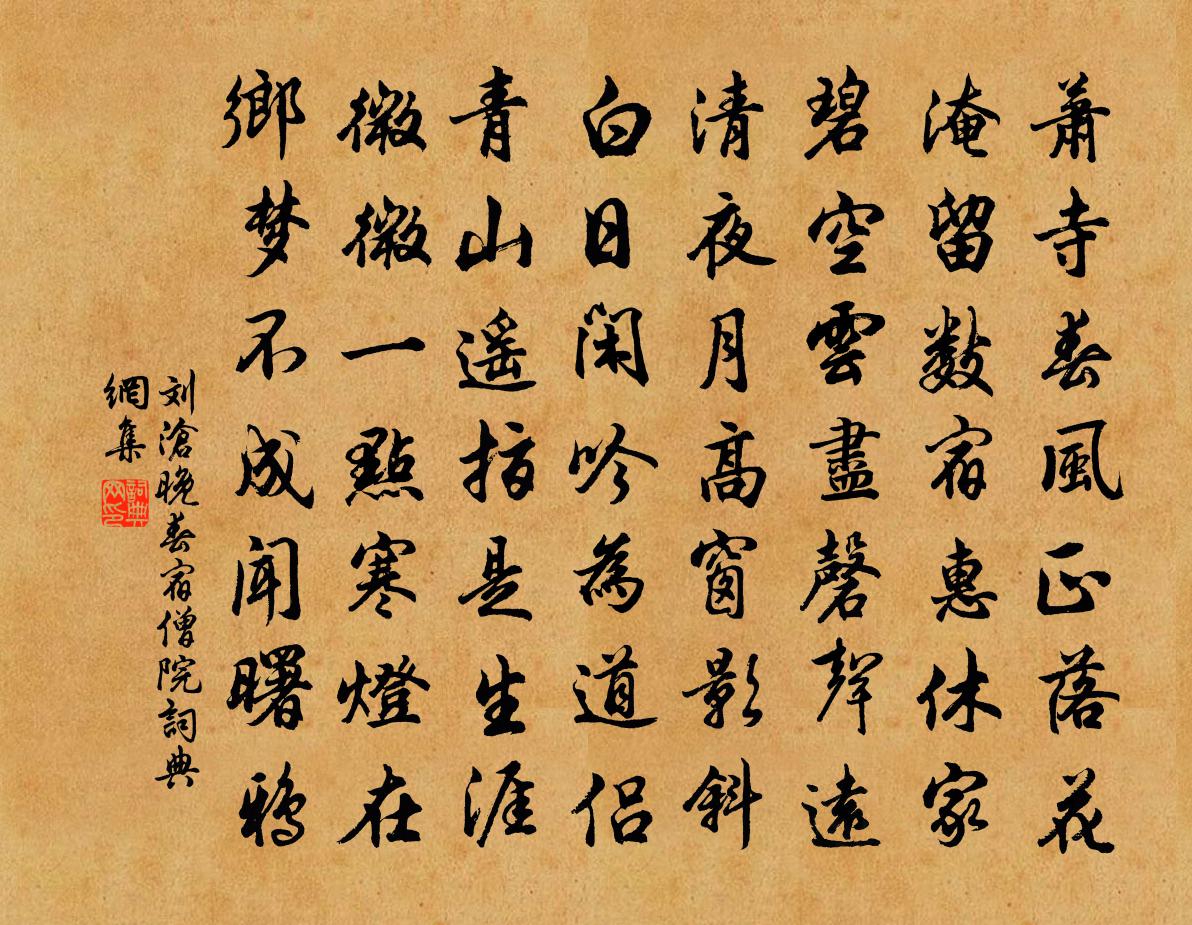 蕭寺春風正落花
淹留數宿惠休家
碧空雲盡磬聲遠
清夜月高窗影斜
白日閑吟為道侶
青山遥指是生涯
微微一點寒燈在
鄉梦不成聞曙鴉
刘滄晚春宿僧院詞典
網集
詞典
网印